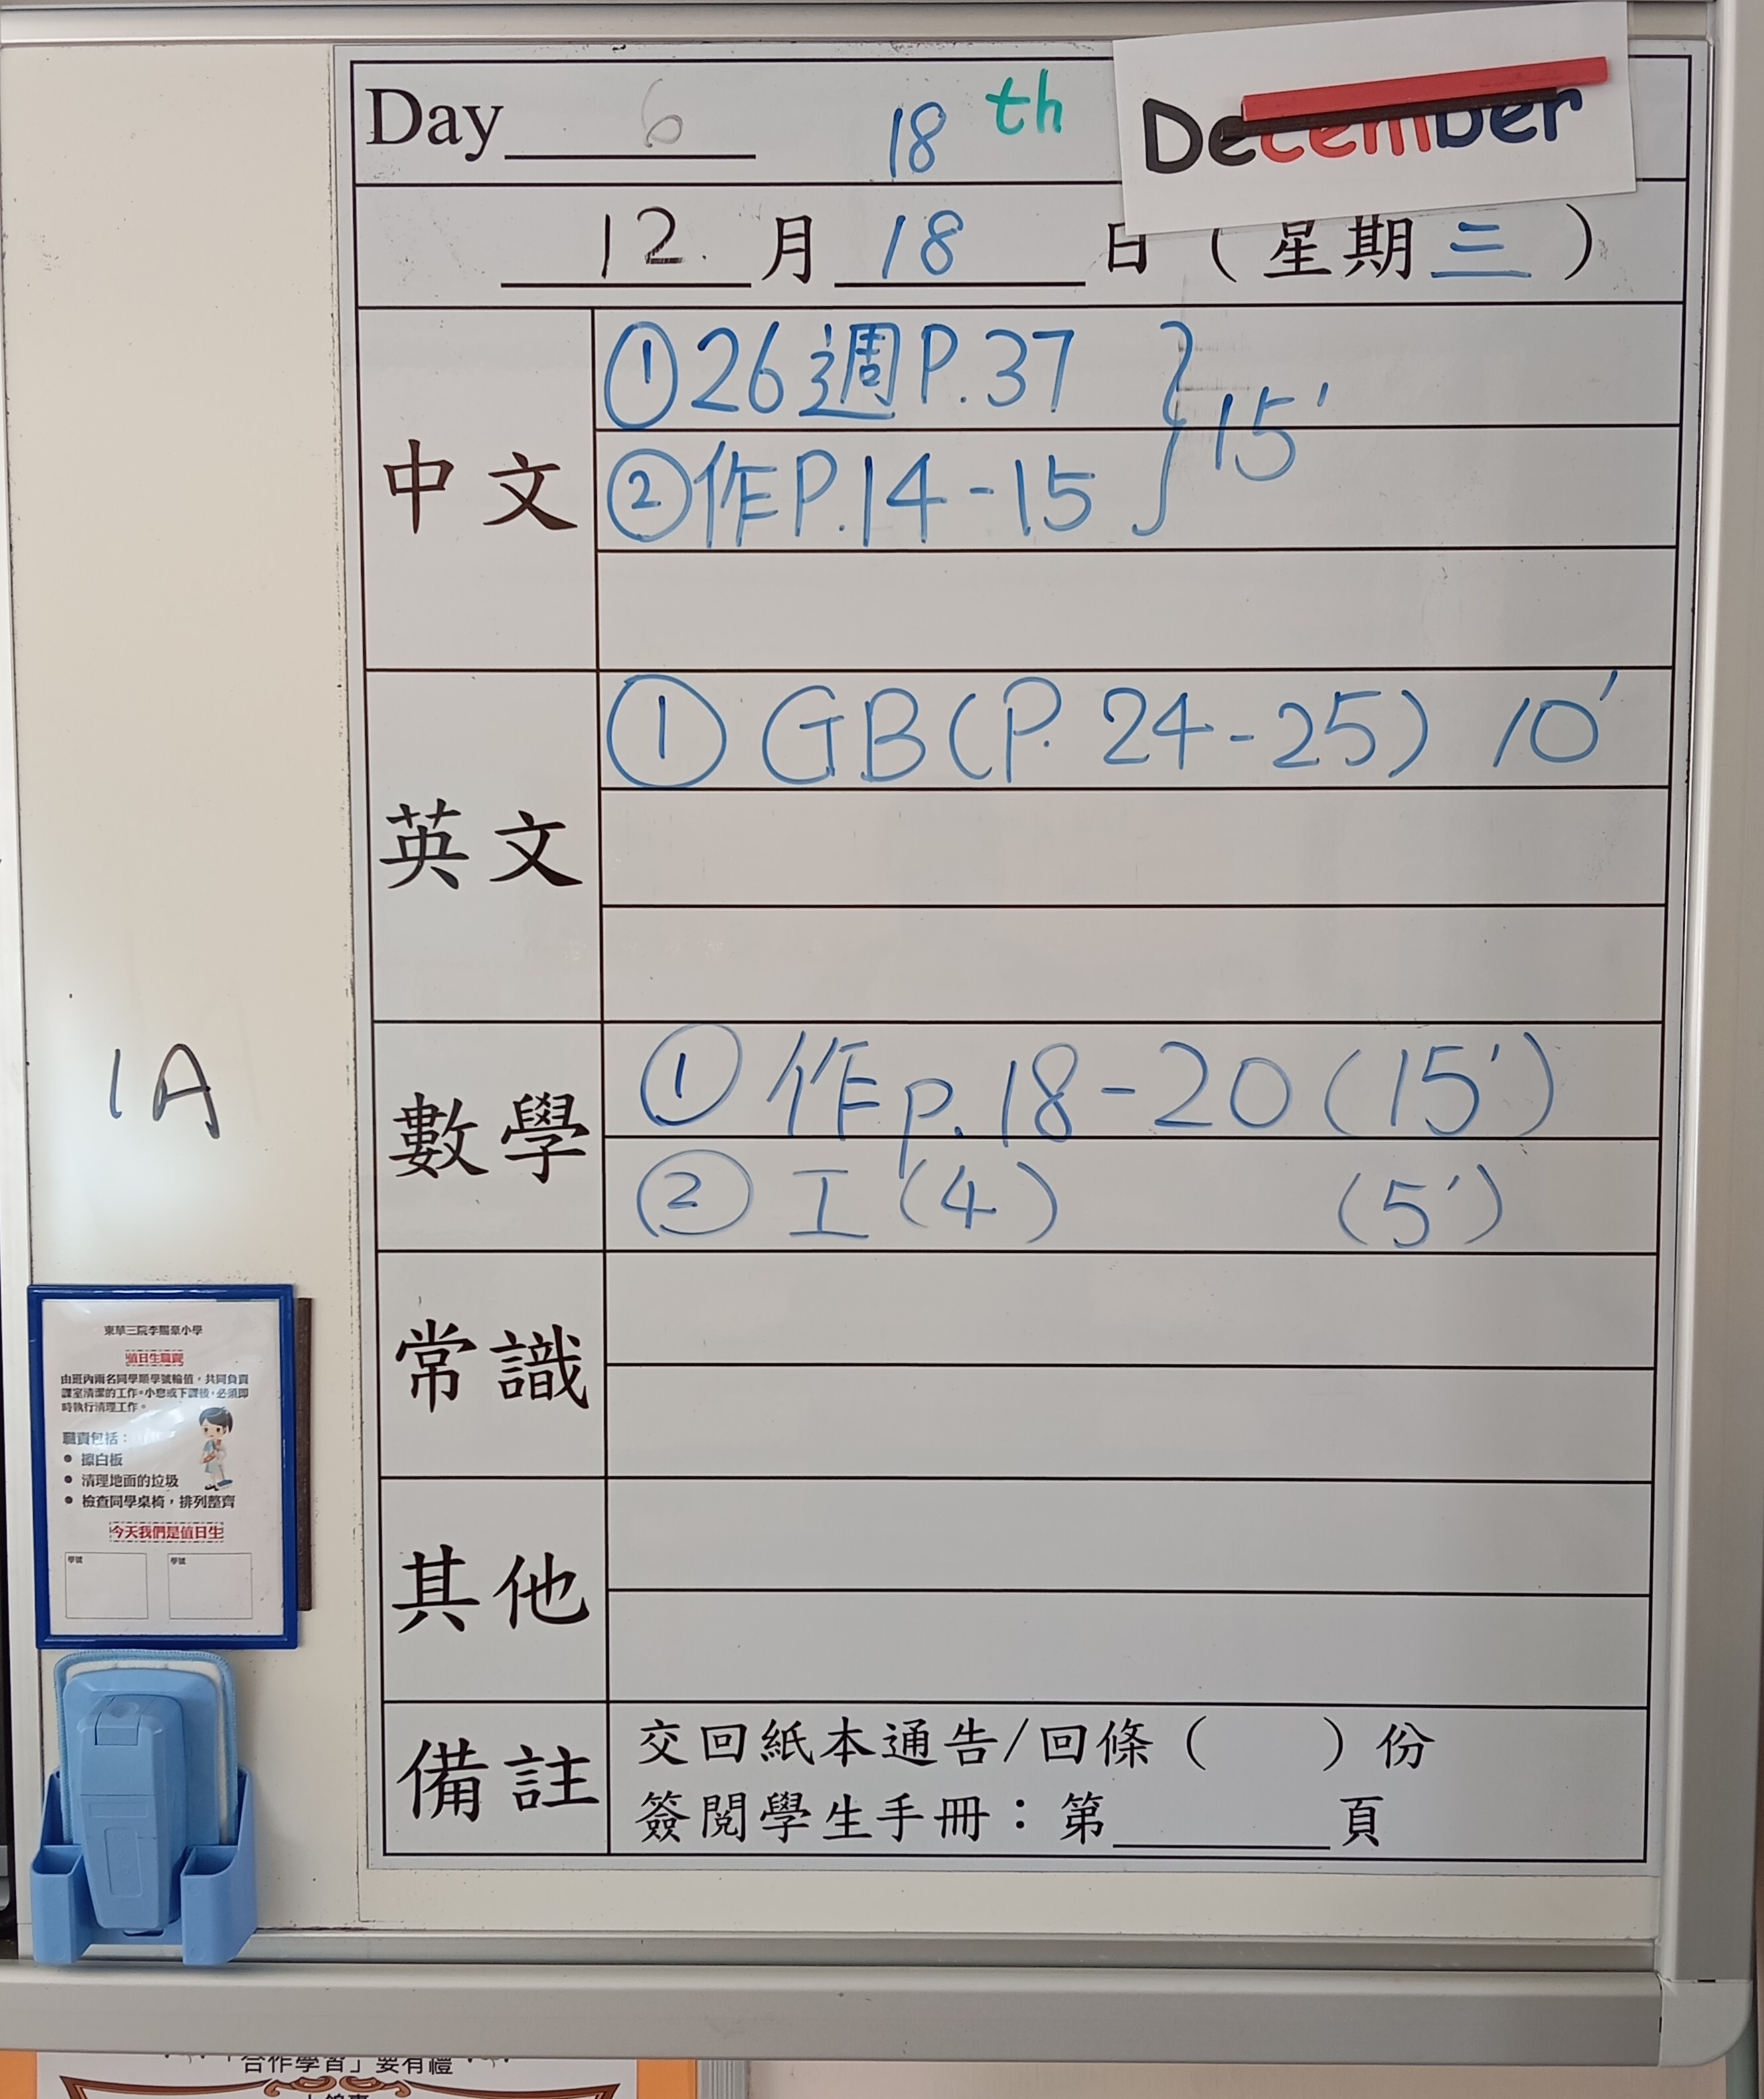 Day 6 18 th December
12. 月 18 日 ( 星期 三 )
中文
① 26週 P.37
② 作 P.14-15
15'
英文
① GB (P. 24-25) 10'
數學
① 作 p. 18-20 (15')
② 工 (4) (5')
常識
其他
備註
交回紙本通告/回條 ( ) 份
簽閱學生手冊：第 頁
1A
東華三院李賜豪小學
值日生職責
由班內兩名同學順學號輪值，共同負責
課室清潔的工作。小息或下課後，必須即
時執行清理工作。
職責包括：
• 擦白板
• 清理地面的垃圾
• 檢查同學桌椅，排列整齊
今天我們是值日生
學號 學號
「合作學習」要有禮